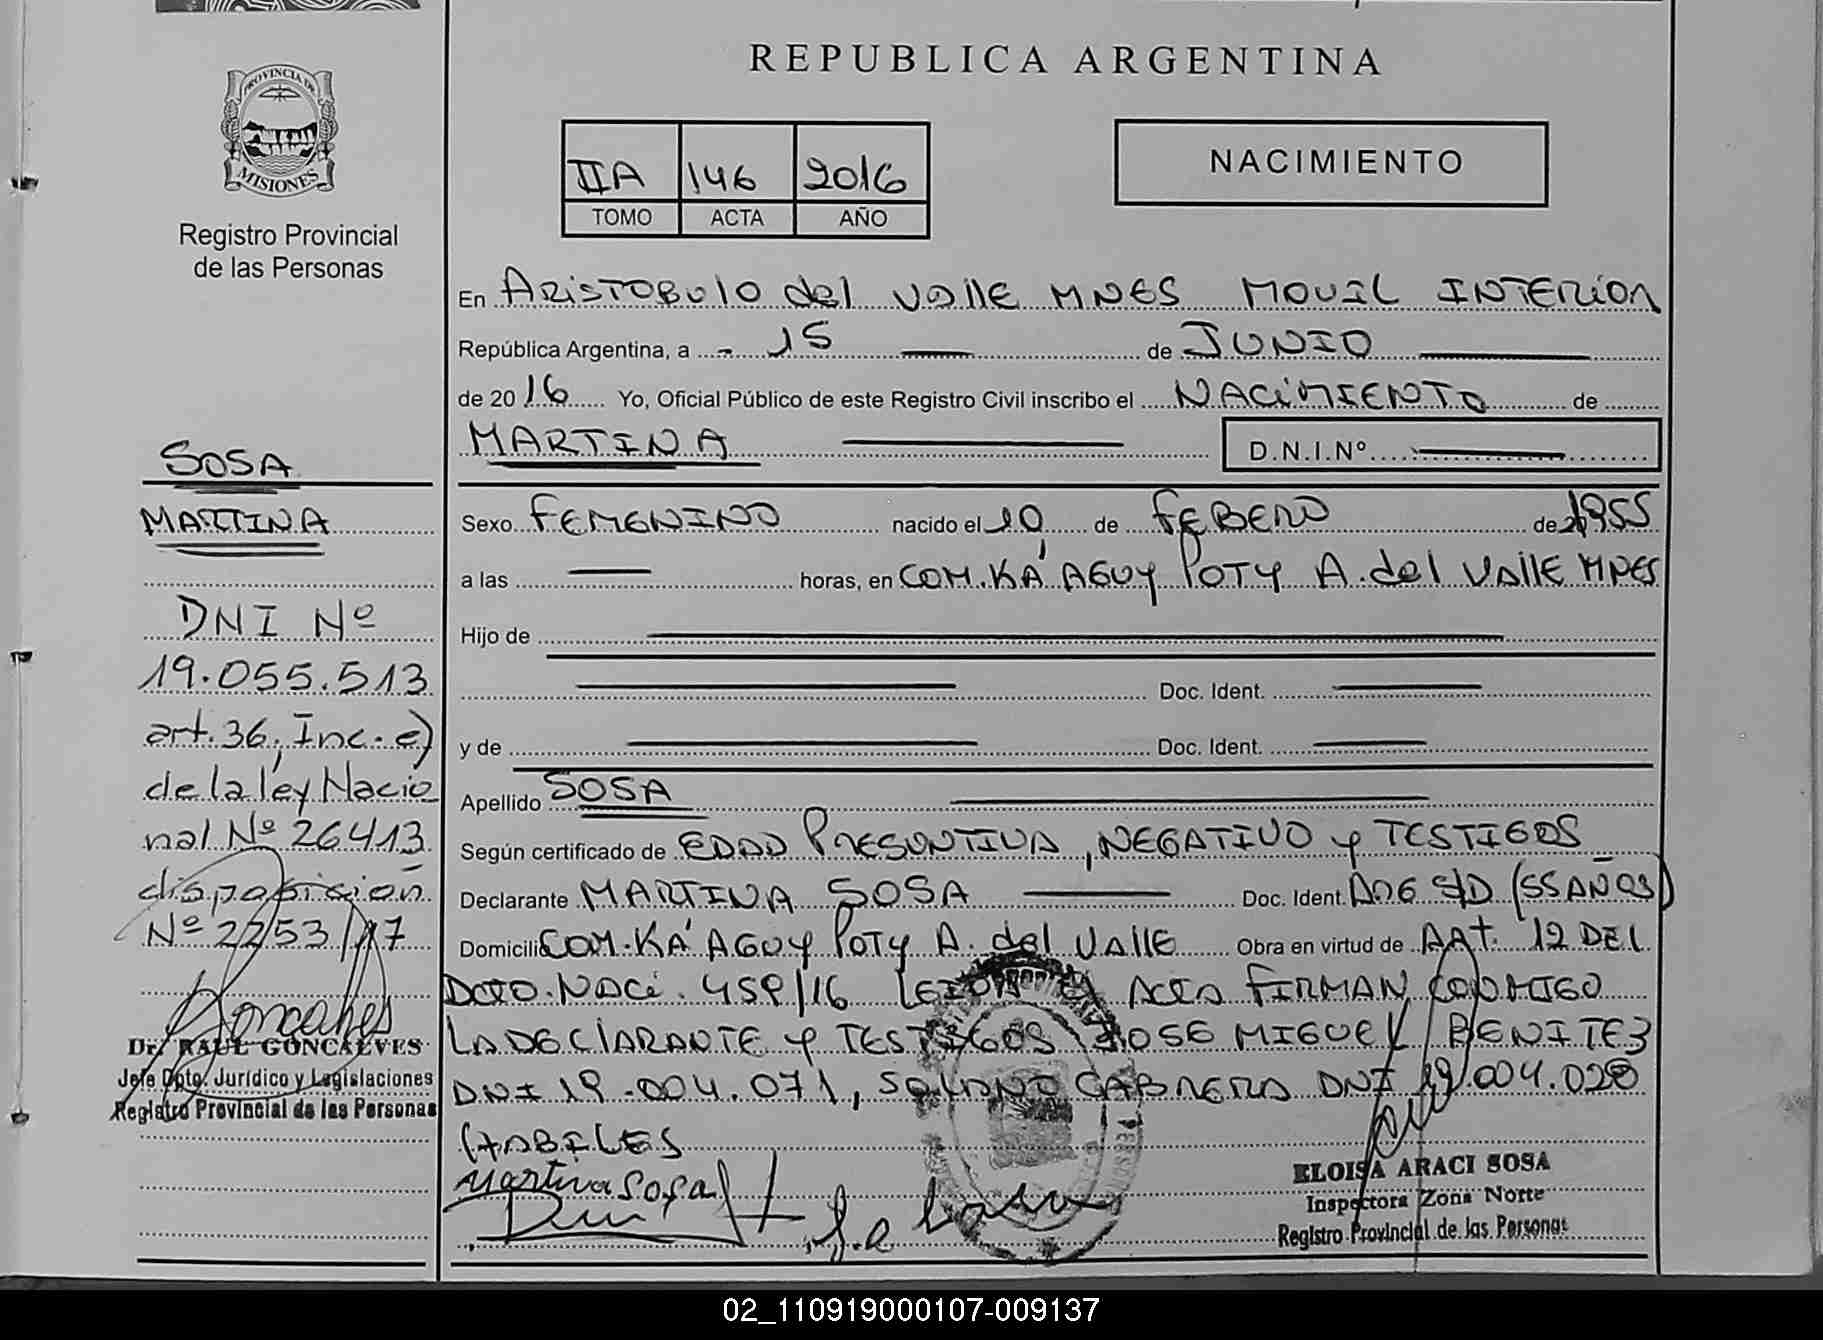 REPUBLICA ARGENTINA
PROVINCIA DE
MISIONES
Registro Provincial
de las Personas
IIA 146 2016
TOMO ACTA AÑO
NACIMIENTO
En ARISTOBULO del VALLE MNES MOVIL INTERIOR
República Argentina, a 15 de JUNIO
de 2016 Yo, Oficial Público de este Registro Civil inscribo el NACIMIENTO de
MARTINA D.N.I.Nº
SOSA
MARTINA
Sexo FEMENINO nacido el 10 de FEBERO de 1955
a las horas, en COM. KA'AGUY POTY A. del VALLE MNES
Hijo de
Doc. Ident.
y de Doc. Ident.
Apellido SOSA
Según certificado de EDAD PRESUNTIVA, NEGATIVO y TESTIGOS
Declarante MARTINA SOSA Doc. Ident. S/D (55 AÑOS)
Domicilio COM. KA'AGUY POTY A. del VALLE Obra en virtud de ART. 12 DEL
DCTO. NACi. 459/16 LEIDA EL ACTA FIRMAN CONMIGO
LA DECLARANTE y TESTIGOS JOSE MIGUEL BENITEZ
DNI 19.004.071, CABRERA DNI 19.004.028
HABILES
Martina Sosa
DNI Nº
19.055.513
art. 36, Inc. e)
de la ley Nacio
nal Nº 26413
disposición
Nº 2253/17
Goncalves
Dr. RAUL GONCALVES
Jefe Dpto. Jurídico y Legislaciones
Registro Provincial de las Personas
ELOISA ARACI SOSA
Inspectora Zona Norte
Registro Provincial de las Personas
02_110919000107-009137